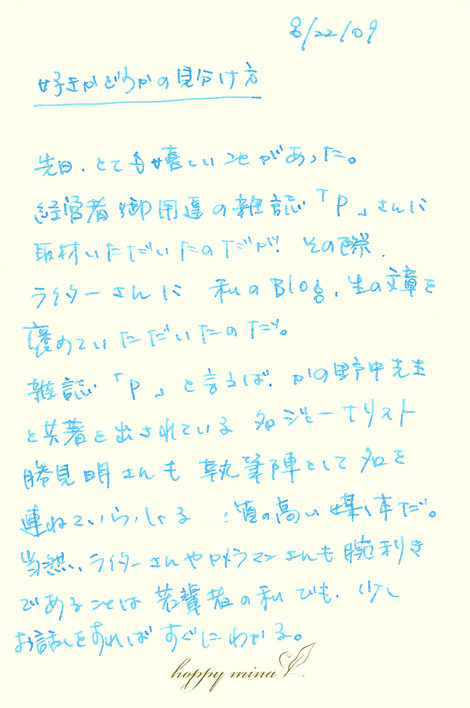 8/22/09
好きかどうかの見分け方
先日、とても嬉しいことがあった。
経営者御用達の雑誌「P」さんに
取材いただいたのだが、その際、
ライターさんに 私のBlog、生の文章を
褒めていただいたのだ。
雑誌「P」と言えば、かの野中先生
と共著を出されている 名ジャーナリスト
勝見明さんも 執筆陣として名を
連ねていらっしゃる 質の高い媒体だ。
当然、ライターさんやカメラマンさんも腕利き
であることは若輩者の私でも、少し
お話しをすればすぐにわかる。
happy mina